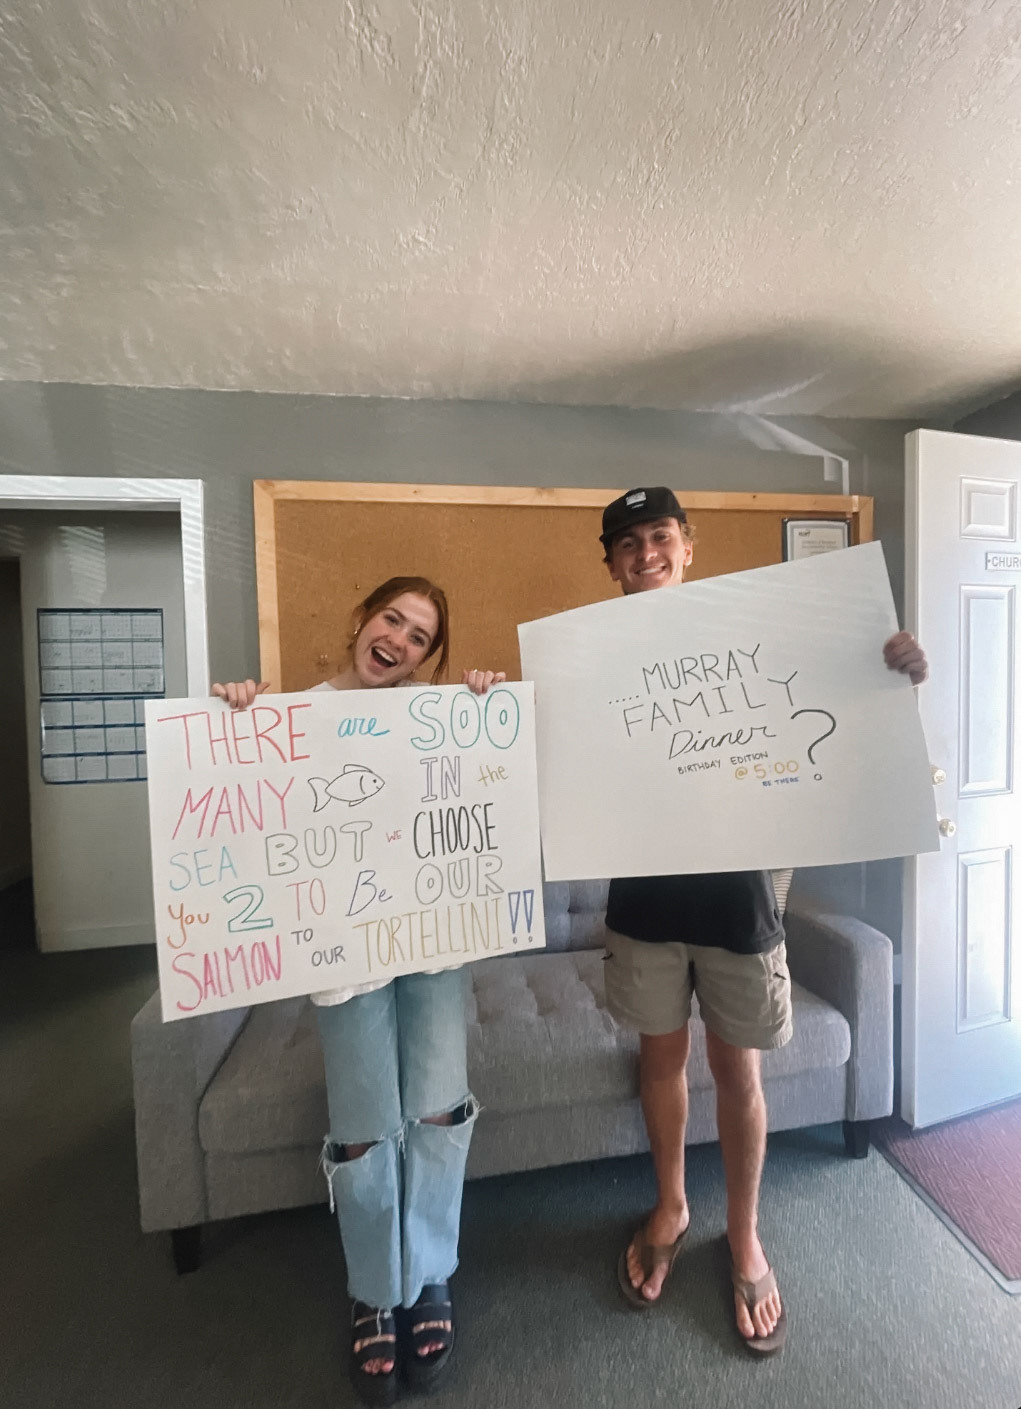 THERE are SOO
MANY IN the
SEA BUT WE CHOOSE
You 2 TO Be OUR
SALMON TO OUR TORTELLINI!!
.....MURRAY
FAMILY
Dinner?
BIRTHDAY EDITION
@ 5:00
BE THERE
CHUR